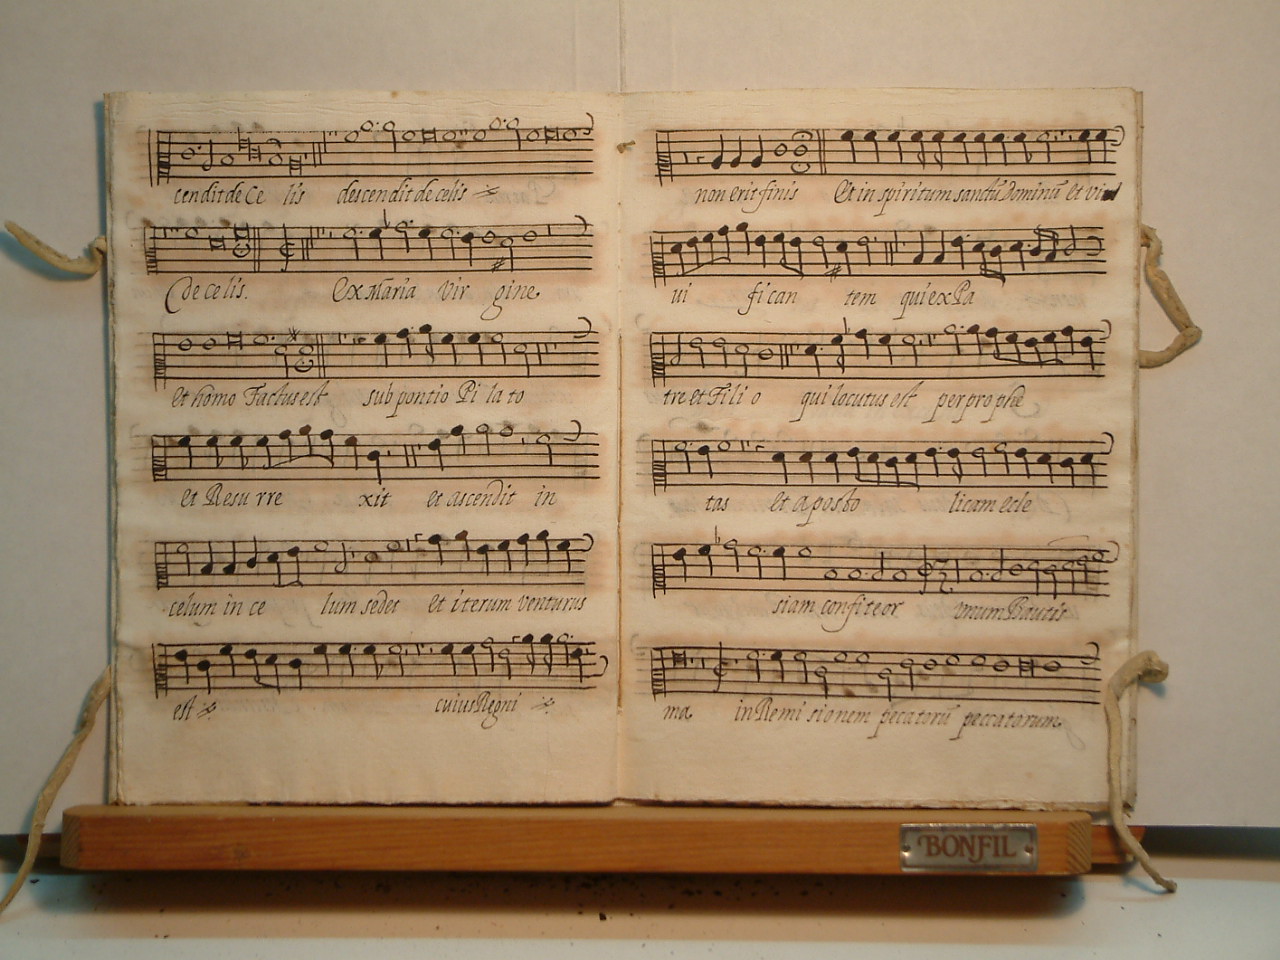 cendit de Ce lis descendit de celis
de celis. Ex Maria Vir gine
et homo Factus est sub pontio Pi la to
et Resu rre xit et ascendit in
celum in ce lum sedet et iterum venturus
est cuius Regni
non erit finis Et in spiritum sanctũ Dominũ et vi
ui fi can tem qui ex Pa
tre et Fili o qui locutus est per pro phe
tas et aposto licam ecle
siam confiteor vnum Bautis
ma in Remi sionem pecatorũ peccatorum
BONFIL